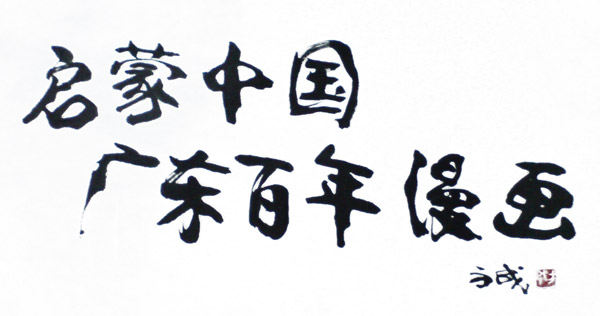 启蒙中国
广东百年漫画
方成